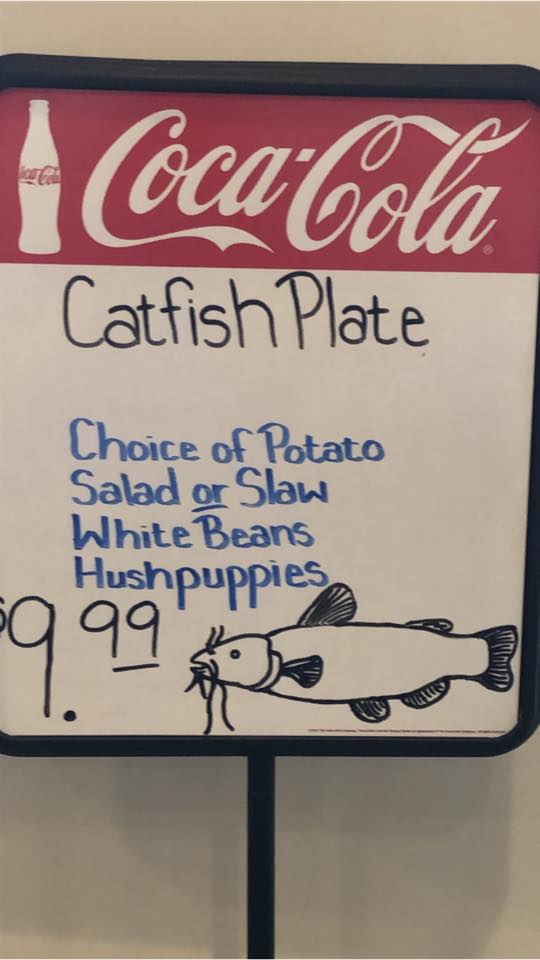 Coca-Cola
Coca-Cola ®
Catfish Plate
Choice of Potato
Salad or Slaw
White Beans
Hushpuppies
$9.99